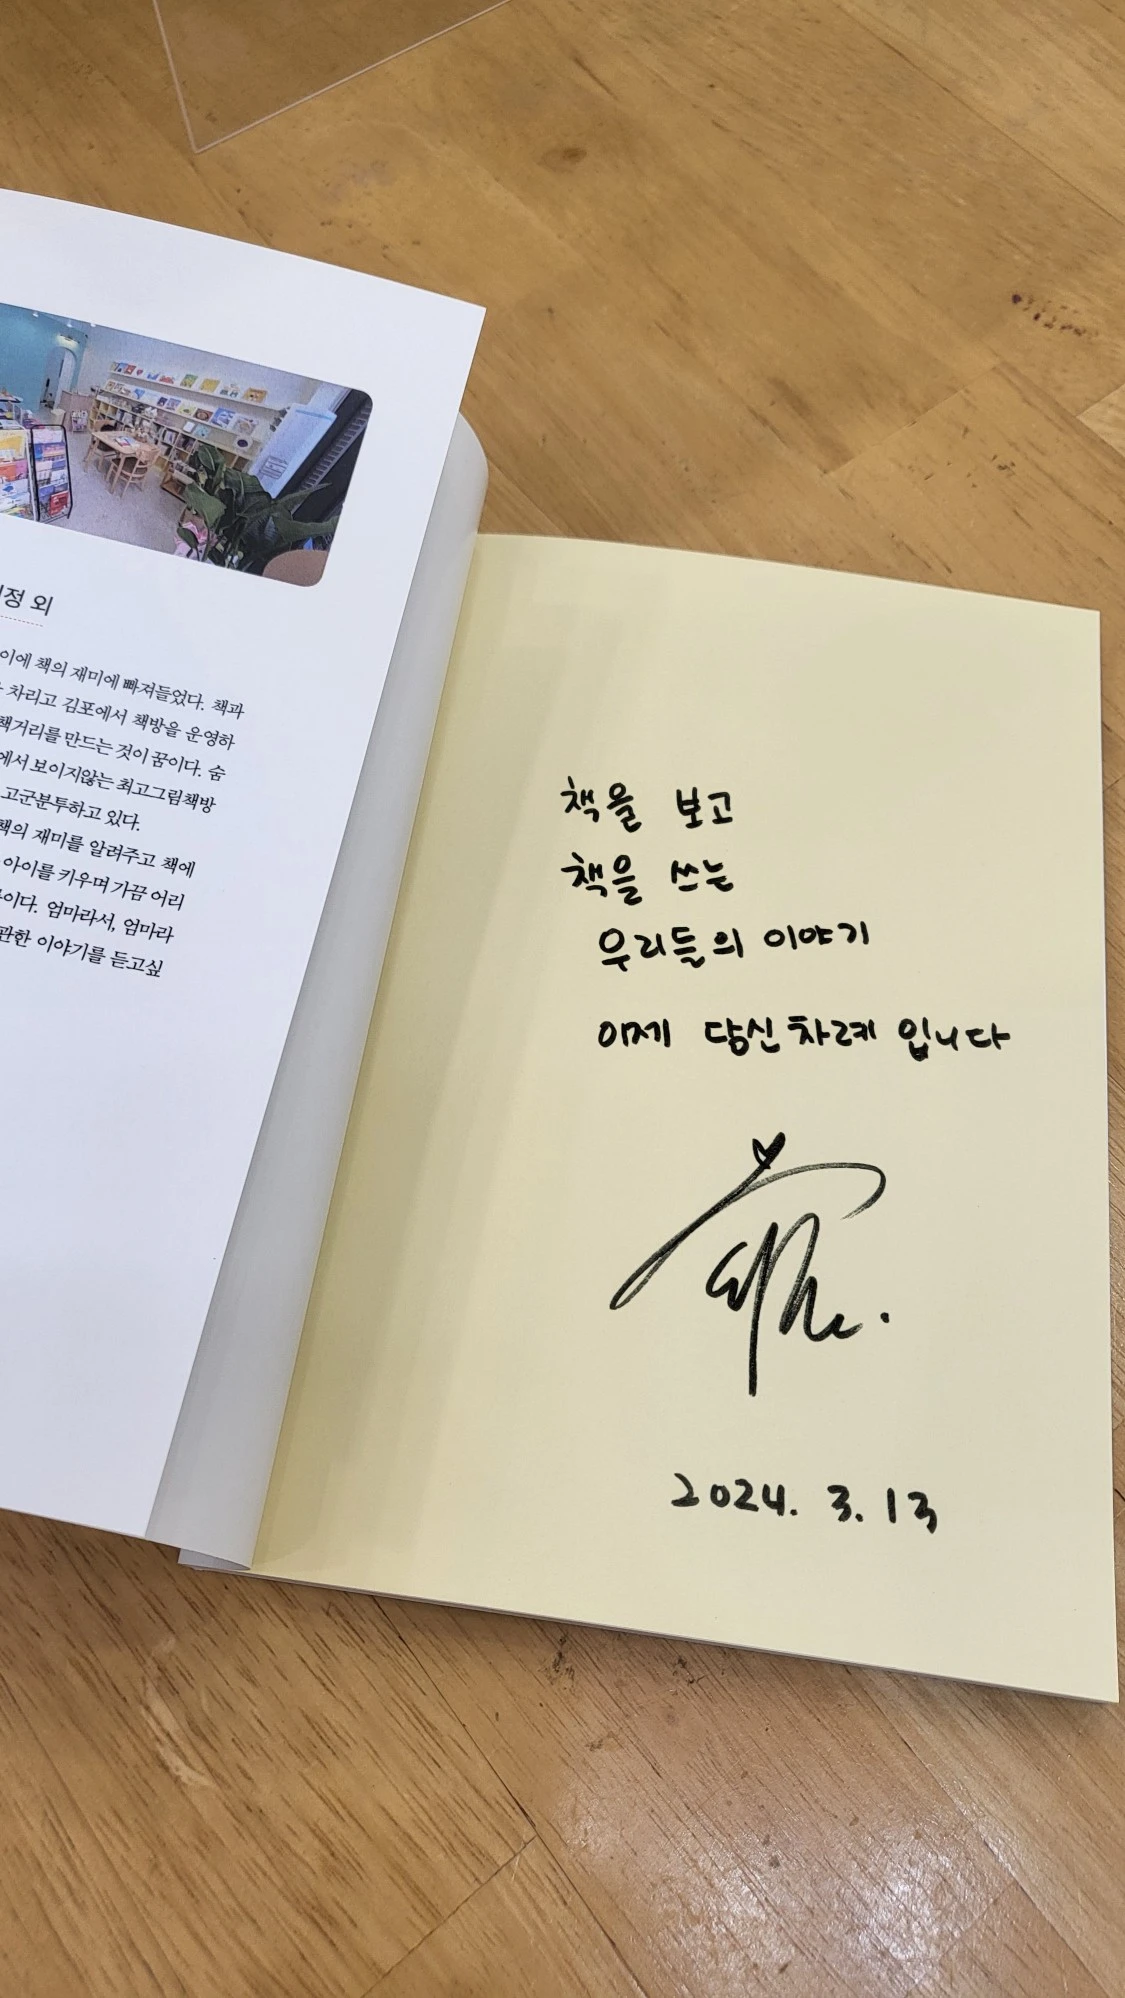 정 외
이에 책의 재미에 빠져들었다. 책과
차리고 김포에서 책방을 운영하
책거리를 만드는 것이 꿈이다. 숨
에서 보이지않는 최고그림책방
고군분투하고 있다.
책의 재미를 알려주고 책에
아이를 키우며 가끔 어리
이다. 엄마라서, 엄마라
관한 이야기를 듣고싶
책을 보고
책을 쓰는
우리들의 이야기
이제 당신 차례 입니다
2024. 3. 13